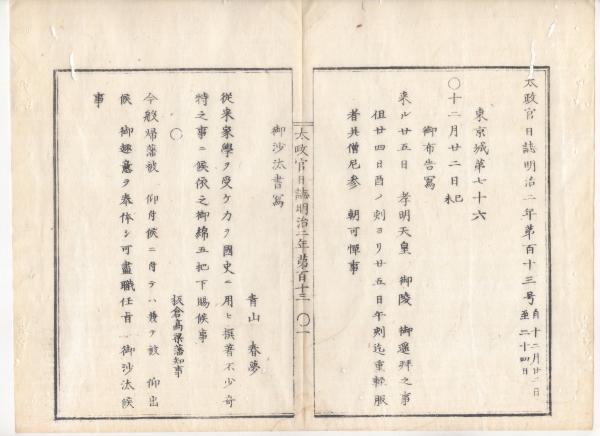 太政官日誌明治二年第百十三号 自十二月廿二日 至二十四日
東京城第七十六
〇十二月廿二日 己未
御布告寫
来ル廿五日 孝明天皇 御陵 御遥拜之事
但廿四日酉ノ刻ヨリ廿五日午刻迄重軽服
者并僧尼参 朝可憚事
太政官日誌明治二年第百十三 〇一
御沙汰書寫
青山 春夢
従来家學ヲ受ケ力ヲ國史ニ用ヒ撰著不少奇
特之事ニ候依之御綿五把下賜候事
〇
板倉高梁藩知事
今般帰藩被 仰付候ニ付テハ兼テ被 仰出
候 御趣意ヲ奉体シ可盡職任旨 御沙汰候
事